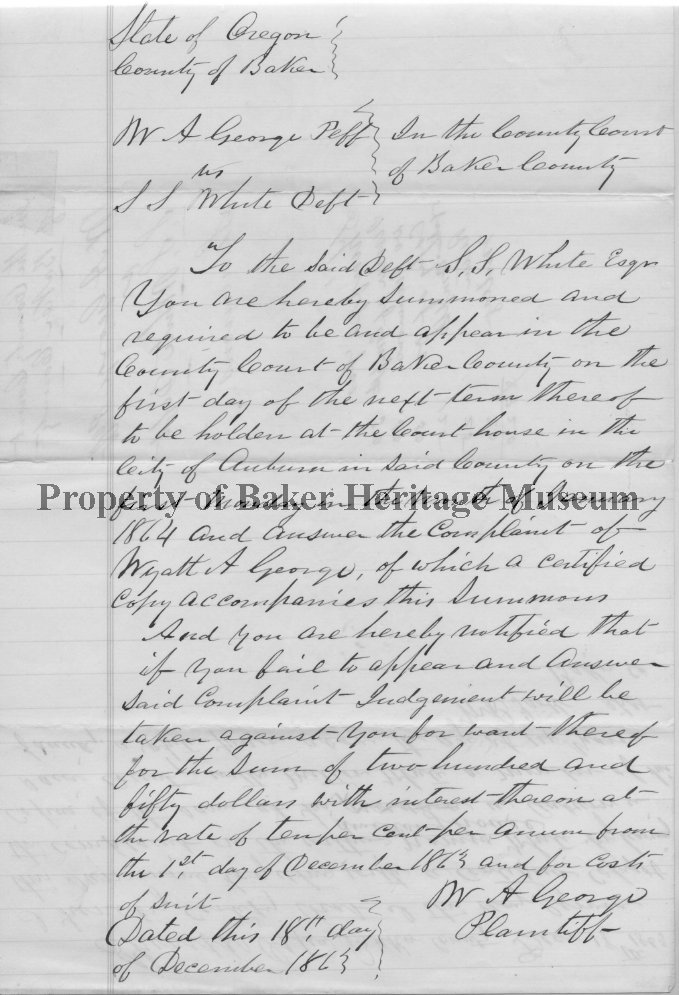 State of Oregon
County of Baker
W A George Peff
In the County Court
vs
of Baker County
S S White Deft
To the said Deft S. S. White Esqr
You are hereby Summoned and
required to be and appear in the
County Court of Baker County on the
first day of the next term thereof
to be holden at the Court house in the
City of Auburn in said County on the
first Monday in the month of January
Property of Baker Heritage Museum
1864 and answer the Complaint of
Wyatt A George, of which a certified
Copy accompanies this Summons
And you are hereby notified that
if you fail to appear and Answer
said Complaint Judgement will be
taken against you for want thereof
for the Sum of two hundred and
fifty dollars with interest thereon at
the rate of ten per Cent per annum from
the 1st day of December 1863 and for Costs
of suit
W A George
Plaintiff
Dated this 18th day
of December 1863